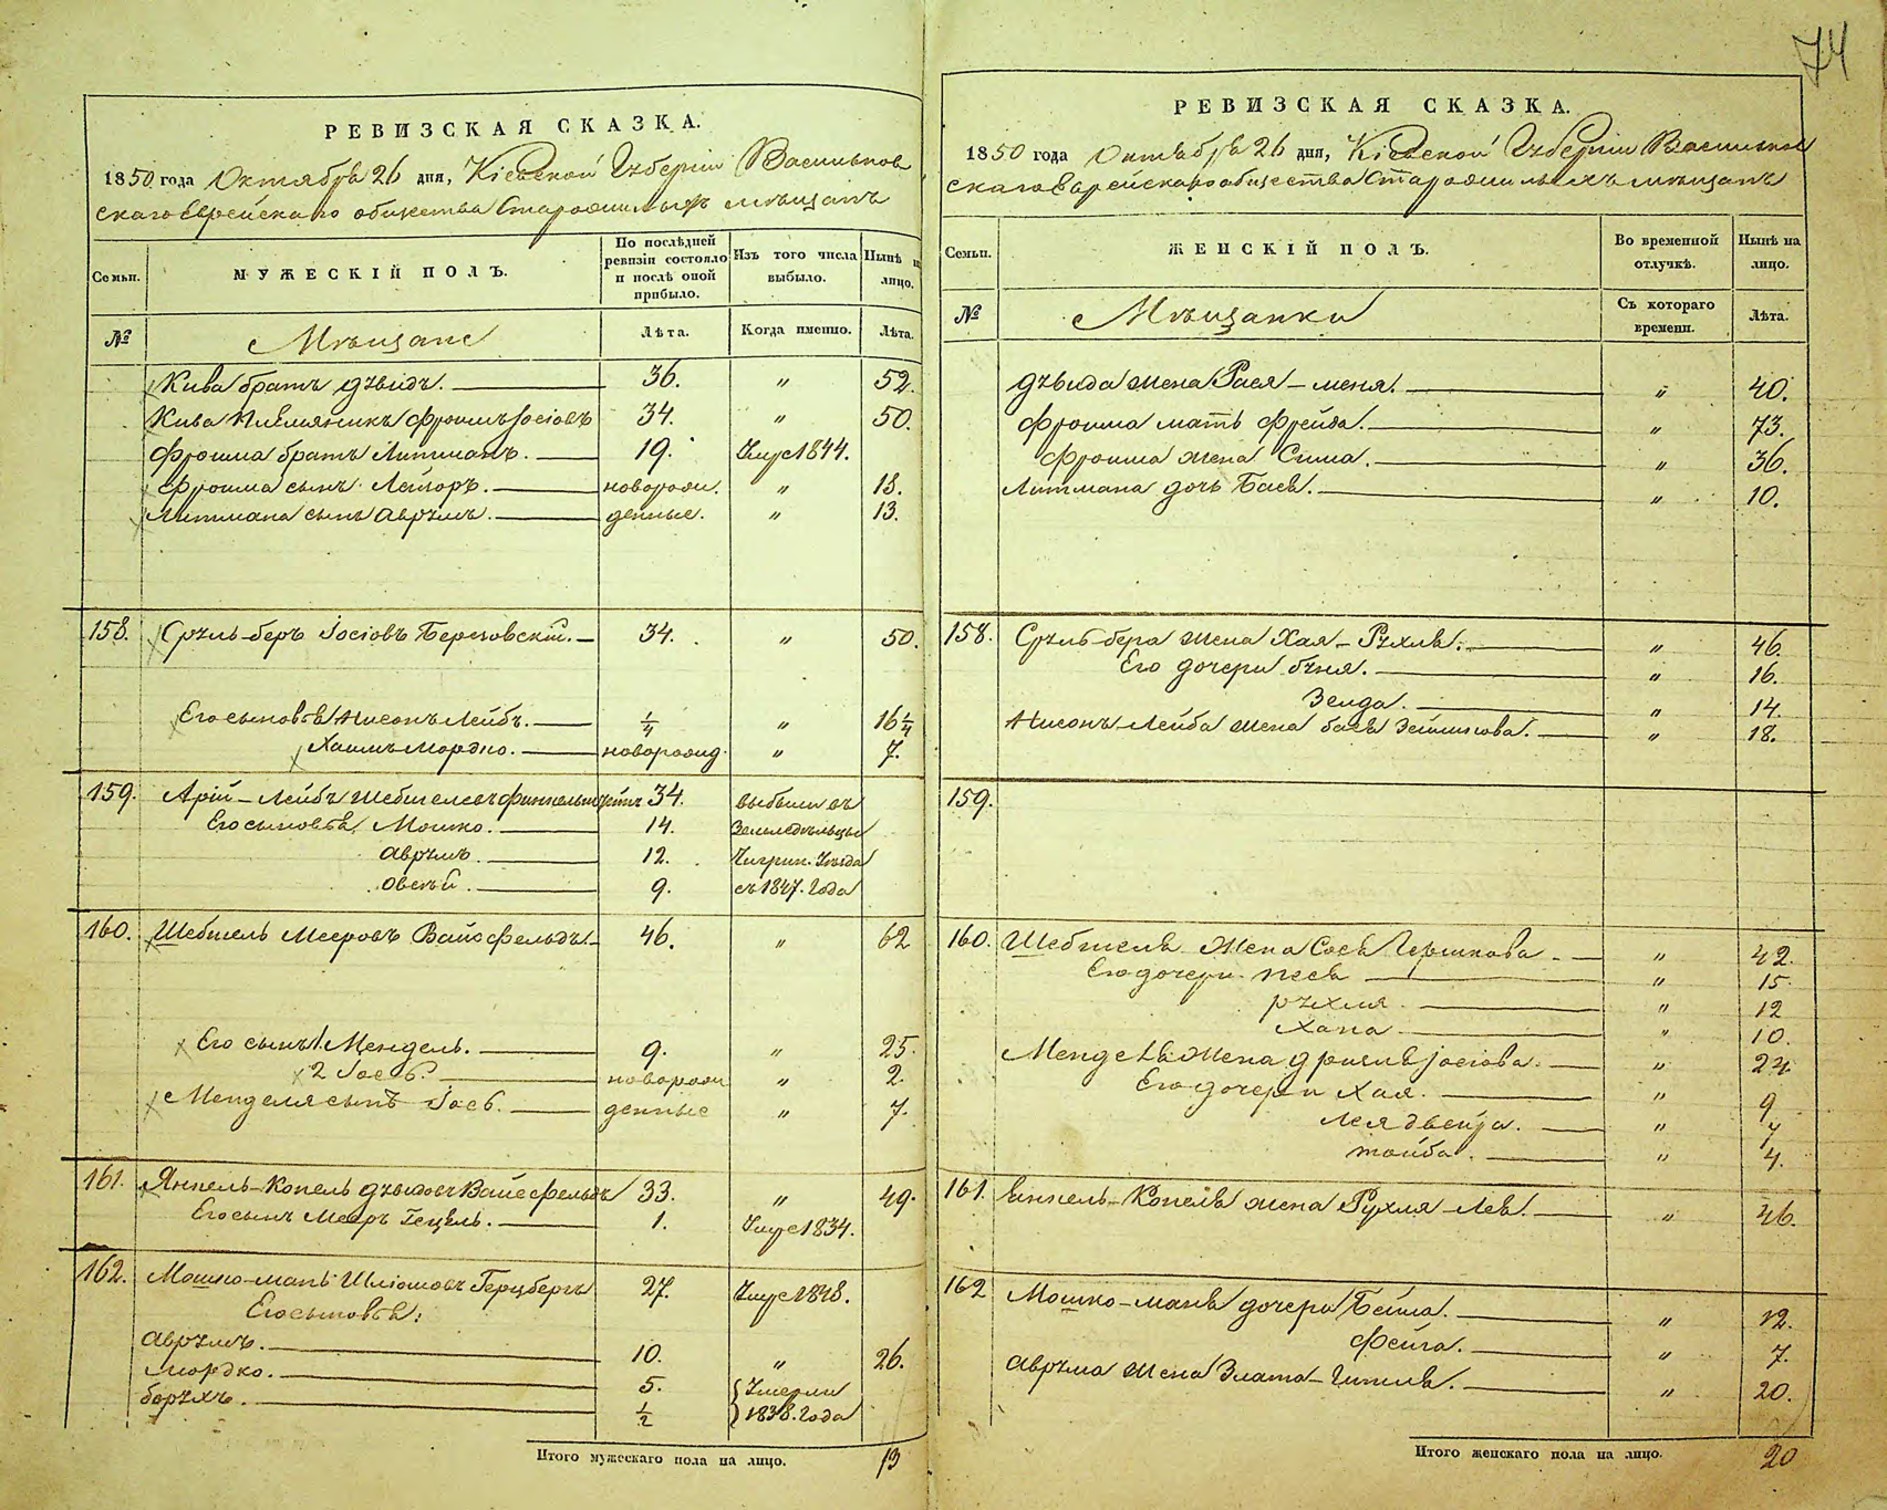 74
РЕВИЗСКАЯ СКАЗКА.
1850 года Октября 26 дня, Кіевской Губерніи Васильков
скаго Еврейскаго общества Старожилыхъ мѣщанъ
Семьи.
МУЖЕСКІЙ ПОЛЪ.
По послѣдней ревизіи состояло и послѣ оной прибыло.
Изъ того числа выбыло.
Нынѣ на лицо.
№
Мѣщане
Лѣта.
Когда именно.
Лѣта.
Кива братъ Дувидъ. 36. " 52.
Кива племяникъ Фроимъ Іосіовъ 34. " 50.
Фроима братъ Литманъ. 19. Умре 1844.
Фроима сынъ Лейзоръ. новорож. " 13.
Литмана сынъ Аврумъ. денные. " 13.
158. Сруль-беръ Іосіовъ Березовскій. 34. " 50.
Его сыновья Нисонъ Лейбъ. 1/4 " 16 1/4
Хаимъ Мордко. новорожд. " 7.
159. Арій-Лейбъ Шебшелевъ Финкельштейнъ 34. выбыли въ
Его сыновья Мошко. 14. Земледѣльцы
Аврумъ. 12. Чигрин. Уѣзда
Овсѣй. 9. съ 1847. Года
160. Шебшель Мееровъ Вайсфельдъ 46. " 62
Его сынъ 1. Мендель. 9. " 25.
2 Іось. новорож " 2.
Менделя сынъ Іось. денные " 7.
161. Янкель-Копель Дувидовъ Вайсфельдъ 33. " 49.
Его сынъ Мееръ Гецель. 1. Умре 1834.
162. Мошко-манъ Шліомовъ Герцбергъ 27. Умре 1848.
Его сыновья:
Аврумъ. 10. " 26.
Мордко. 5. Умерли
Борухъ. 1/2 1838. Года
Итого мужескаго пола на лицо. 13
РЕВИЗСКАЯ СКАЗКА.
1850 года Октября 26 дня, Кіевской Губерніи Васильков
скаго Еврейскаго общества Старожилыхъ мѣщанъ
Семьи.
ЖЕНСКІЙ ПОЛЪ.
Во временной отлучкѣ.
Нынѣ на лицо.
№
Мѣщанки
Съ котораго времени.
Лѣта.
Дувида жена Рася-меня. " 40.
Фроима мать Фрейда. " 73.
Фроима жена Сима. " 36.
Литмана дочь Бася. " 10.
158. Сруль-бера жена Хая-Рухля. " 46.
Его дочери Буня. " 16.
Зелда. " 14.
Нисонъ-Лейба жена Бася Зейликова. " 18.
159.
160. Шебшеля жена Сося Гершкова " 42.
Его дочери Песя " 15.
Рухля. " 12
Хана " 10.
Менделя жена Іосіова. " 24
Его дочери Хая. " 9
Лея Двейра. " 7
Тойба. " 4.
161. Янкель-Копеля жена Рухля-Лея. " 46.
162 Мошко-мана дочери Бейла. " 12.
Фейга. " 7.
Аврума жена Злата-Гителя. " 20.
Итого женскаго пола на лицо. 20